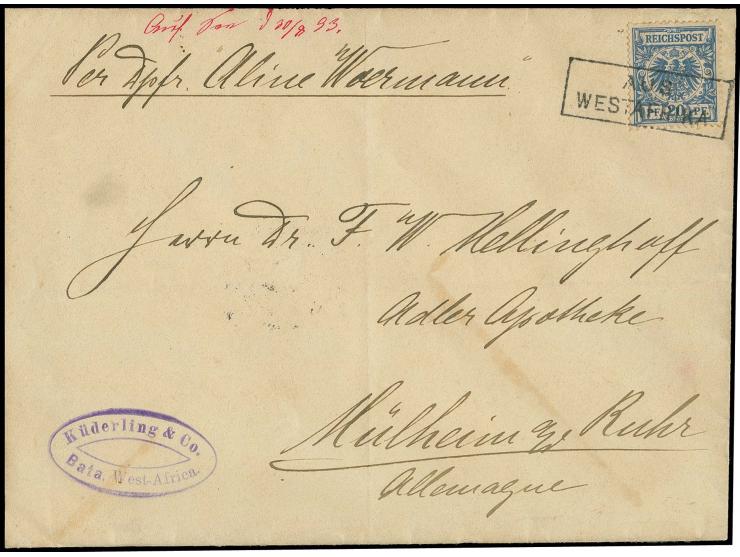 Auf See d 20/8 93.
Per Dpfr. "Aline Woermann"
REICHSPOST
AUS
WESTAFRIKA
PF. 20 PF.
Herrn Dr. F. W. Hellinghoff
Adler Apotheke
Mülheim a/ Ruhr
Allemagne
Küderling & Co.
Bata, West-Africa.